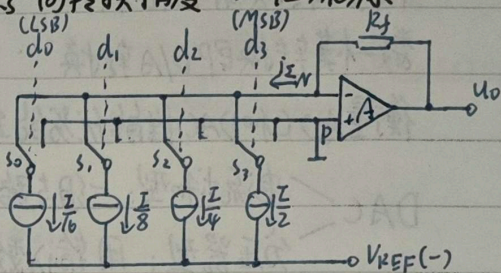 (LSB) (MSB)
d0 d1 d2 d3 Rf
iΣ N
- A uo
+ P
S0 S1 S2 S3
I/16 I/8 I/4 I/2
VREF(-)